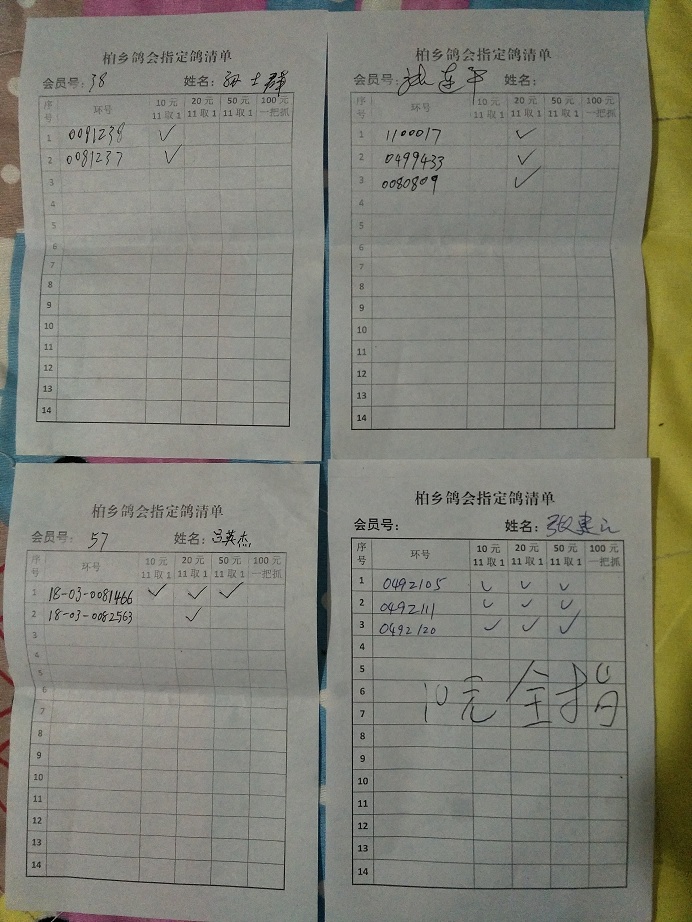 柏乡鸽会指定鸽清单
会员号: 38 姓名:
序号 环号 10元 11取1 20元 11取1 50元 11取1 100元 一把抓
1 0091238 ✓
2 0081237 ✓
3
4
5
6
7
8
9
10
11
12
13
14
柏乡鸽会指定鸽清单
会员号: 姓名:
序号 环号 10元 11取1 20元 11取1 50元 11取1 100元 一把抓
1 1100017 ✓
2 0499433 ✓
3 0080809 ✓
4
5
6
7
8
9
10
11
12
13
14
柏乡鸽会指定鸽清单
会员号: 57 姓名: 吕英杰
序号 环号 10元 11取1 20元 11取1 50元 11取1 100元 一把抓
1 18-03-0081466 ✓ ✓ ✓
2 18-03-0082563 ✓
3
4
5
6
7
8
9
10
11
12
13
14
柏乡鸽会指定鸽清单
会员号: 姓名:
序号 环号 10元 11取1 20元 11取1 50元 11取1 100元 一把抓
1 0492105 ✓ ✓ ✓
2 0492111 ✓ ✓ ✓
3 0492120 ✓ ✓ ✓
4
5
6
7
10元全指
8
9
10
11
12
13
14